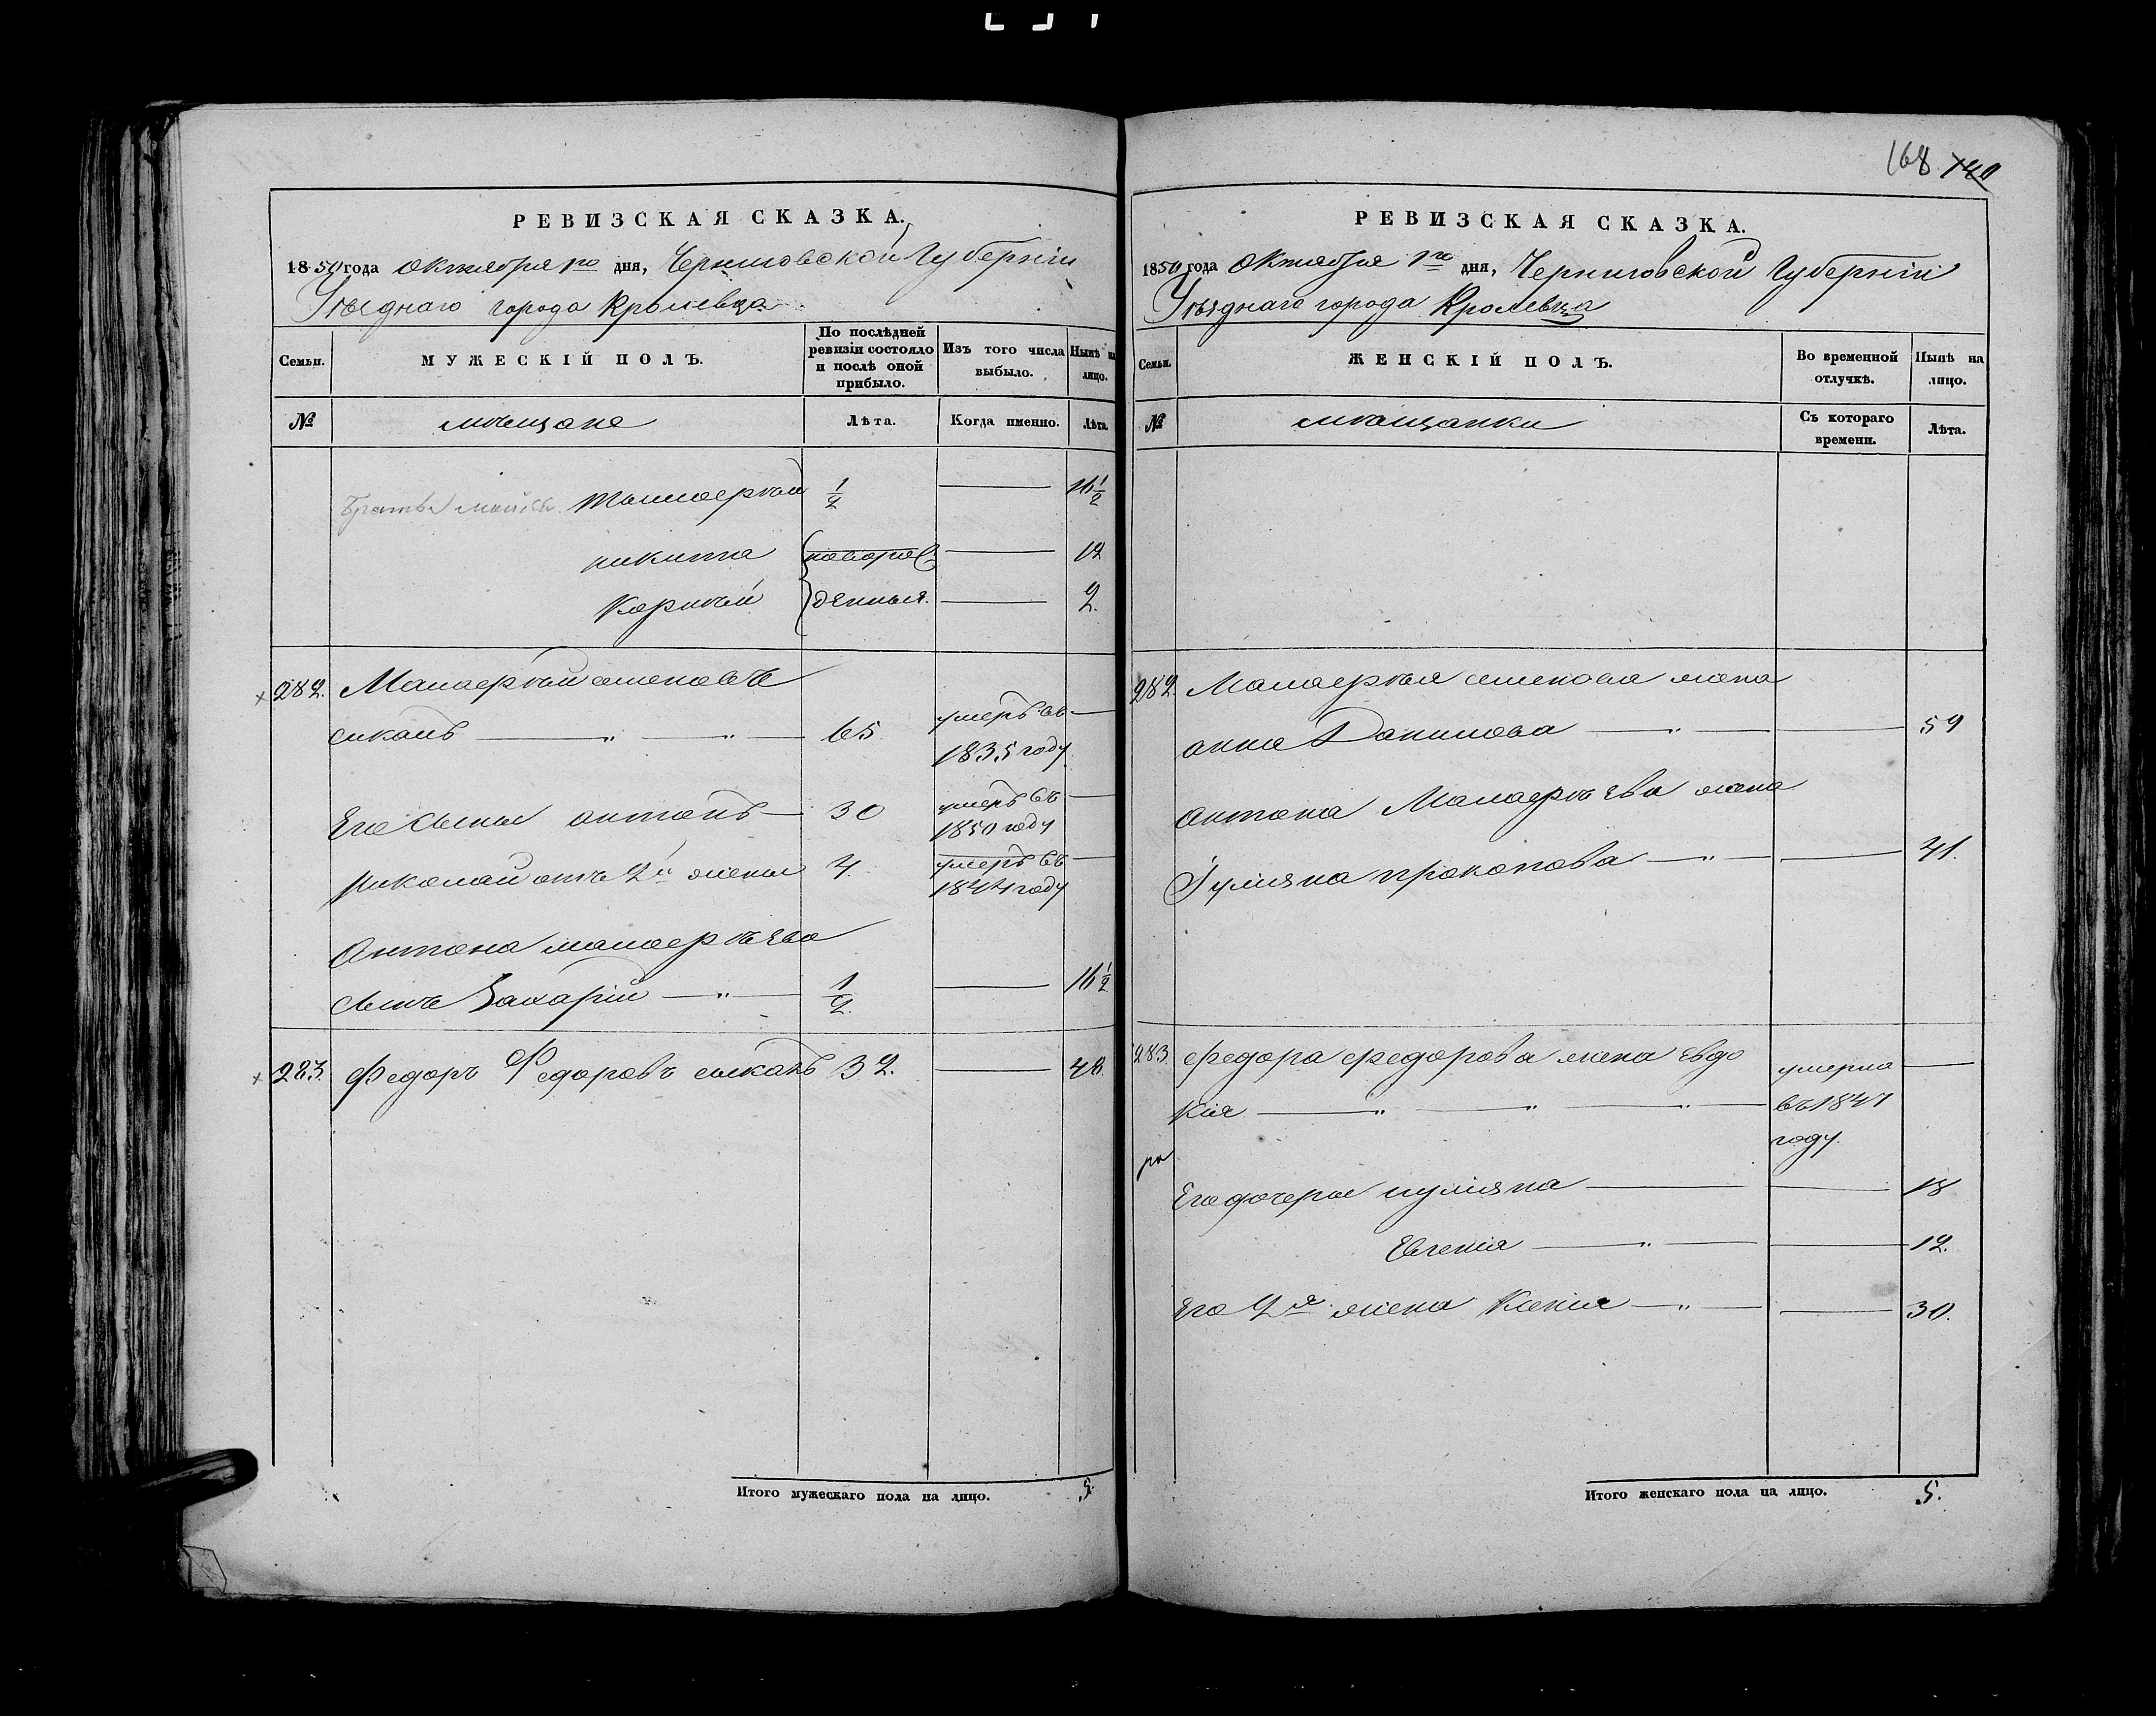 168 140
РЕВИЗСКАЯ СКАЗКА.
1850 года Октября 1го дня, Черниговской Губерніи
Уѣзднаго города Кролевца
Семьи.
МУЖЕСКІЙ ПОЛЪ.
По послѣдней ревизіи состояло и послѣ оной прибыло.
Изъ того числа выбыло.
Нынѣ на лицо.
№ мѣщане Лѣта. Когда именно. Лѣта.
Братья 1/2 — 16 1/2
никита новорож — 12
Корнѣй денныя. — 2.
282. Малаерѣй
65 умеръ въ 1835 году —
Его сыны антонъ — 30 умеръ въ 1850 году —
Николай отъ 2й жены 4. умеръ въ 1844 году —
Антона малаерѣева
сынъ Захарій — " — 1/2. — 16 1/2
283. Федоръ Федоровъ 32. — 48.
Итого мужескаго пола на лицо. 5.
РЕВИЗСКАЯ СКАЗКА.
1850 года Октября 1го дня, Черниговской Губерніи
Уѣзднаго города Кролевца
Семьи.
ЖЕНСКІЙ ПОЛЪ.
Во временной отлучкѣ.
Нынѣ на лицо.
№ мѣщанки Съ котораго времени. Лѣта.
282. Малаерѣя жена
анна Данилова — " — — 59
антона Малаерѣева жена
Іулияна прокопова — " — — 41.
283. Федора Федорова жена Евдо
кия — " — " — " — умерла въ 1847 году. —
Его дочеры иулияна — — 18
Евгения — " — — 12.
Его 2я жена Ксения — " — — 30.
Итого женскаго пола на лицо. 5.